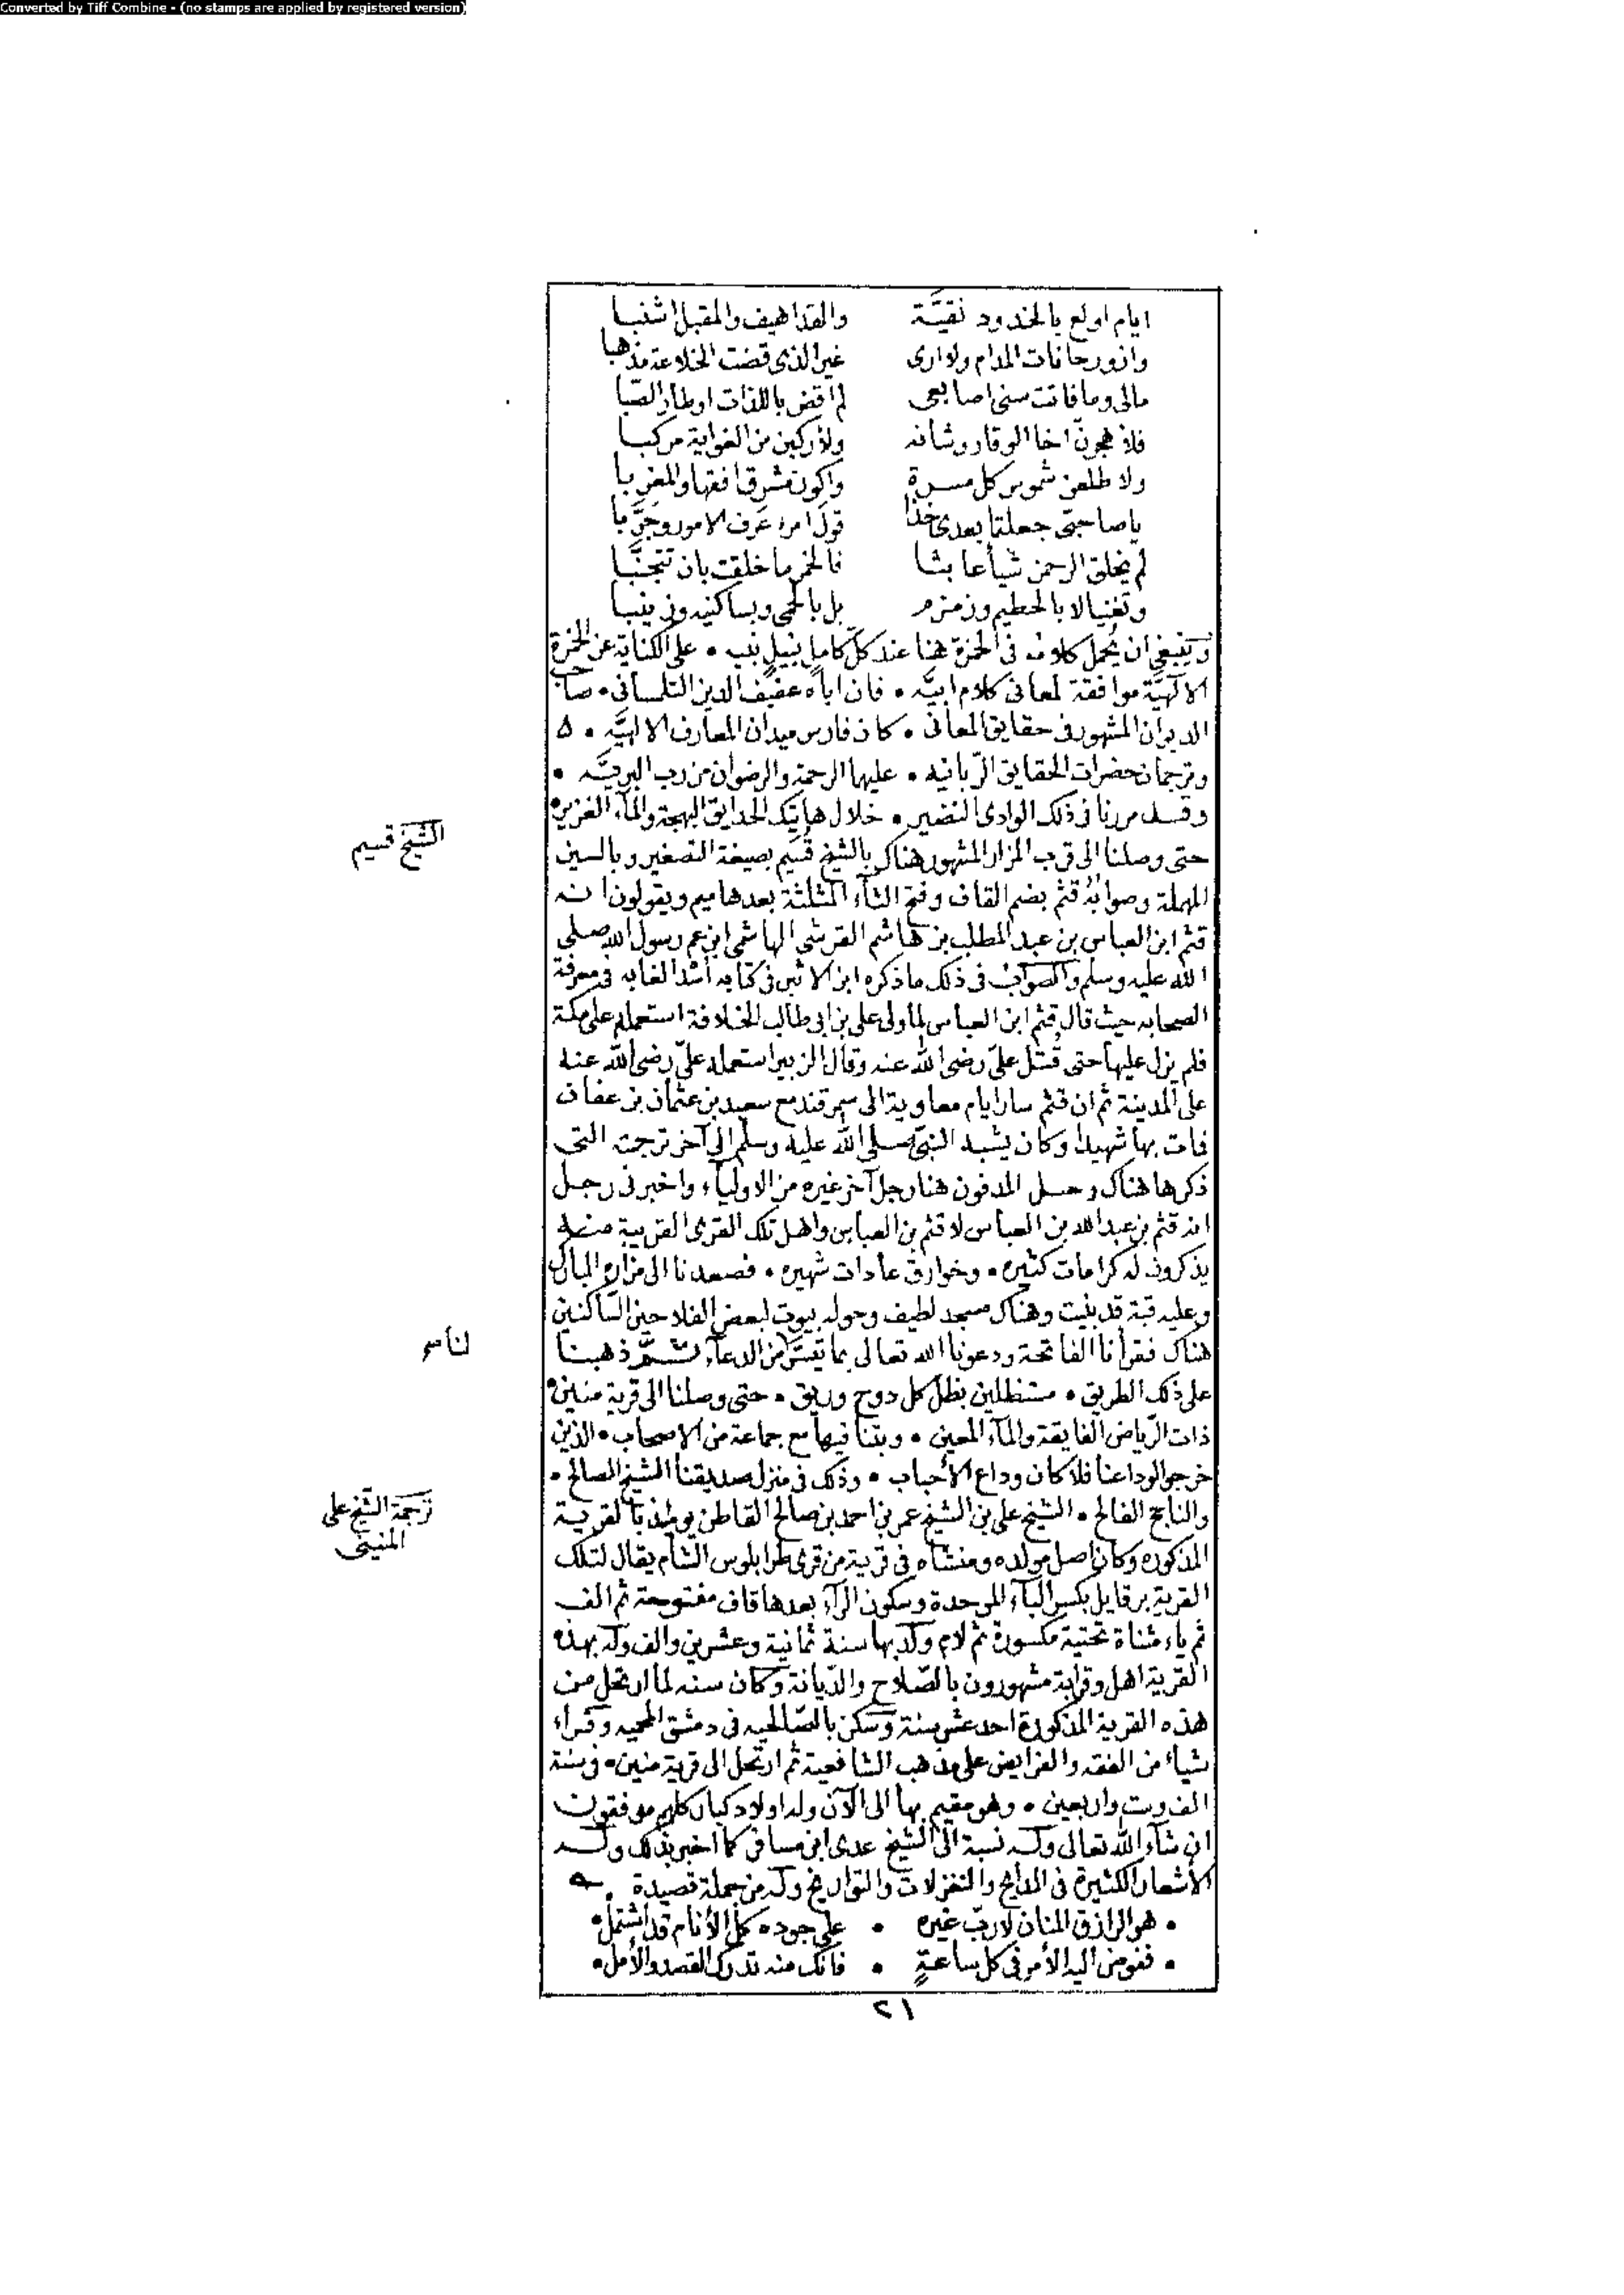 Converted by Tiff Combine - (no stamps are applied by registered version)
ايام اولع بالخدود نقيَّة والقد اهيف والمقبل اشنبا
وازور حانات المدام ولا ارى غير الذى قضت الخلاعة مذهبا
مالى وما فاتت سنى اصابعى لم اقض باللذات اوطار الصّبا
فلاهجونّ اخا الوقار وشانه ولاركبن من الغواية مركبا
ولاطلعن شموس كل مسرة واكون مشرق افقها والمغربا
ياصاحبيّ جعلتا بعدى خذا قول امرء عرف الامور وجرَّبا
لم يخلق الرحمن شيأ عابثا فالخمر ما خلقت بان تتجنَّبا
وتغنيا لا بالحطيم وزمزم بل بالحمى وبساكنيه وزينبا
وينبغى ان يُحمل كلامه فى الخمرة هنا عند كلّ كاملٍ نبيلٍ نبيه • على الكناية عن الخمرة
الالٓهيَّة موافقة لمعانى كلام ابيَّه • فان اباه عفيف الدين التلمسانى • صاحب
الديوان المشهور فى حقايق المعانى • كان فارس ميدان المعارف الالهيَّه • ه
وترجمان حضرات الحقايق الرّبانيه • عليهما الرحمة والرضوان من رب البريَّه •
وقد مررنا فى ذلك الوادى النضير • خلال هاتيك الحدايق البهجة والمآء الغزير•
حتى وصلنا الى قرب المزار المشهور هناك بالشيخ قُسَيم بصيغة التصغير وبالسين
المهملة وصوابُهُ قثم بضم القاف وفتح الثآء المثلثة بعدها ميم ويقولون انه
قثم ابن العباس بن عبد المطلب بن هاشم القرشى الهاشمى ابن عم رسول الله صلى
الله عليه وسلم والصوابُ فى ذلك ما ذكره ابن الاثير فى كتابه اُسْد الغابه فى معرفة
الصحابه حيث قال قثم ابن العباس لما ولى على بن ابى طالب الخلافة استعمله على مكة
فلم يزل عليها حتى قُتل علىّ رضى الله عنه وقال الزبير استعمله علىّ رضى الله عنه
على المدينة ثم ان قثم سار ايام معاوية الى سمرقند مع سعيد بن عثمان بن عفان
فمات بها شهيدا وكان يشبه النبىّ صلى الله عليه وسلم الى آخر ترجمته التى
ذكرها هناك ولعل المدفون هنا رجل آخر غيره من الاوليآء واخبرنى رجل
انه قثم بن عبد الله بن العباس لا قثم بن العباس واهل تلك القرى القريبة منه
يذكرون له كرامات كثيره • وخوارق عادات شهيره • فصعدنا الى مزاره المبارك
وعليه قبة قد بنيت وهناك مسجد لطيف وحوله بيوت لبعض الفلاحين السّاكنين
هناك فقرأنا الفاتحة ودعونا الله تعالى بما تيسّر من الدعآء ثمَّ ذهبنا
على ذلك الطريق • مستظلين بظل كل دوح وريق • حتى وصلنا الى قرية منين•
ذات الرّياض الفايقة والمآء المعين • وبتنا فيها مع جماعة من الاصحاب • الذين
خرجوا لوداعنا فلا كان وداع الأحباب • وذلك فى منزل صديقنا الشيخ الصالح •
والناجح الفالح • الشيخ على بن الشيخ عمر بن احمد بن صالح القاطن يومئذ بالقرية
المذكوره وكان اصل مولده ومنشاه فى قرية من قرى طرابلوس الشام يقال لتلك
القرية برقايل بكسر البآء الموحدة وسكون الرآء بعدها قاف مفتوحة ثم الف
ثم ياء مثناة تحتية مكسورة ثم لام ولد بها سنة ثمانية وعشرين والف وله بهذه
القرية اهل وقرابة مشهورون بالصّلاح والدّيانة وكان سنه لما ارتحل من
هذه القرية المذكورة احد عشر سنة وسكن بالصّالحيه فى دمشق المحميه وقراء
شياء من الفقه والفرايض على مذهب الشافعية ثم ارتحل الى قرية منين • فى سنة
الف وست واربعين • وهو مقيم بها الى الآن وله اولاد كبار كلهم موفقون
ان شآء الله تعالى وله نسبة الى الشيخ عدى ابن مسافر كما اخبر بذلك وله
الأشعار الكثيرة فى المدايح والتغزلات والتواريخ وله من جملة قصيدة •
• هو الرازق المنان لا ربّ غيره • على جوده كل الأنام قد اشتمل•
• ففوض اليه الأمر فى كل ساعةٍ • فانّك منه تدرك القصد والأمل•
٢١
الشيخ قسيم
ترجمة الشّيخ على
المنينى